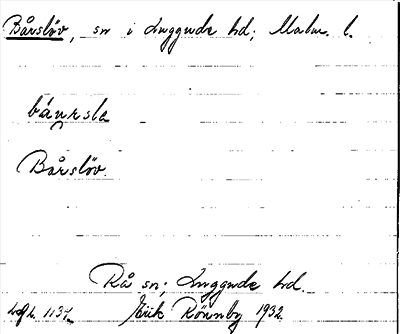 Bårslöv, sn i Luggude hd; Malm. l.
båursla
Bårslöv.
Rå sn; Luggude hd.
Erik Rönnby 1932